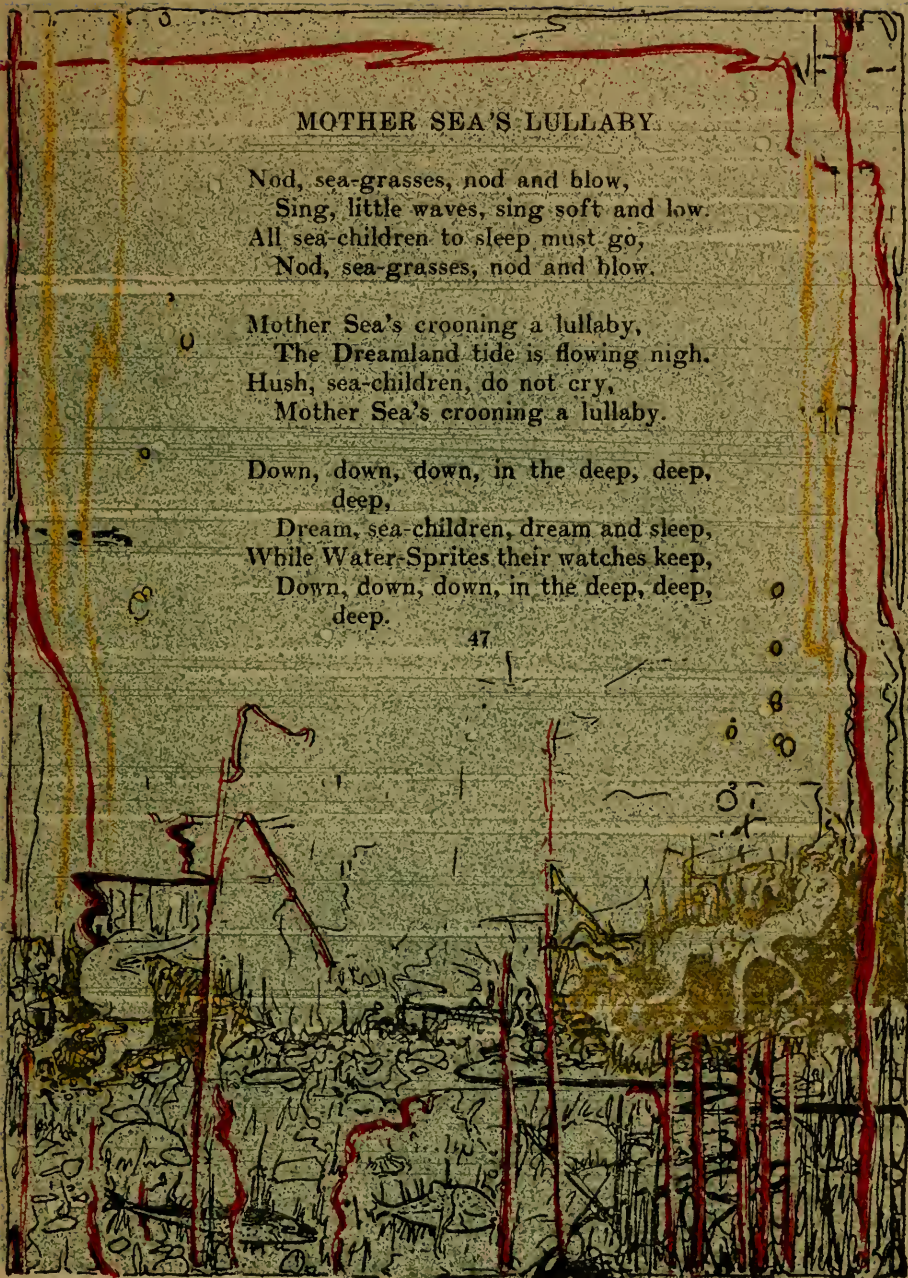 MOTHER SEA'S LULLABY
Nod, sea-grasses, nod and blow,
Sing, little waves, sing soft and low.
All sea-children to sleep must go,
Nod, sea-grasses, nod and blow.
Mother Sea's crooning a lullaby,
The Dreamland tide is flowing nigh.
Hush, sea-children, do not cry,
Mother Sea's crooning a lullaby.
Down, down, down, in the deep, deep,
deep,
Dream, sea-children, dream and sleep,
While Water-Sprites their watches keep,
Down, down, down, in the deep, deep,
deep.
47